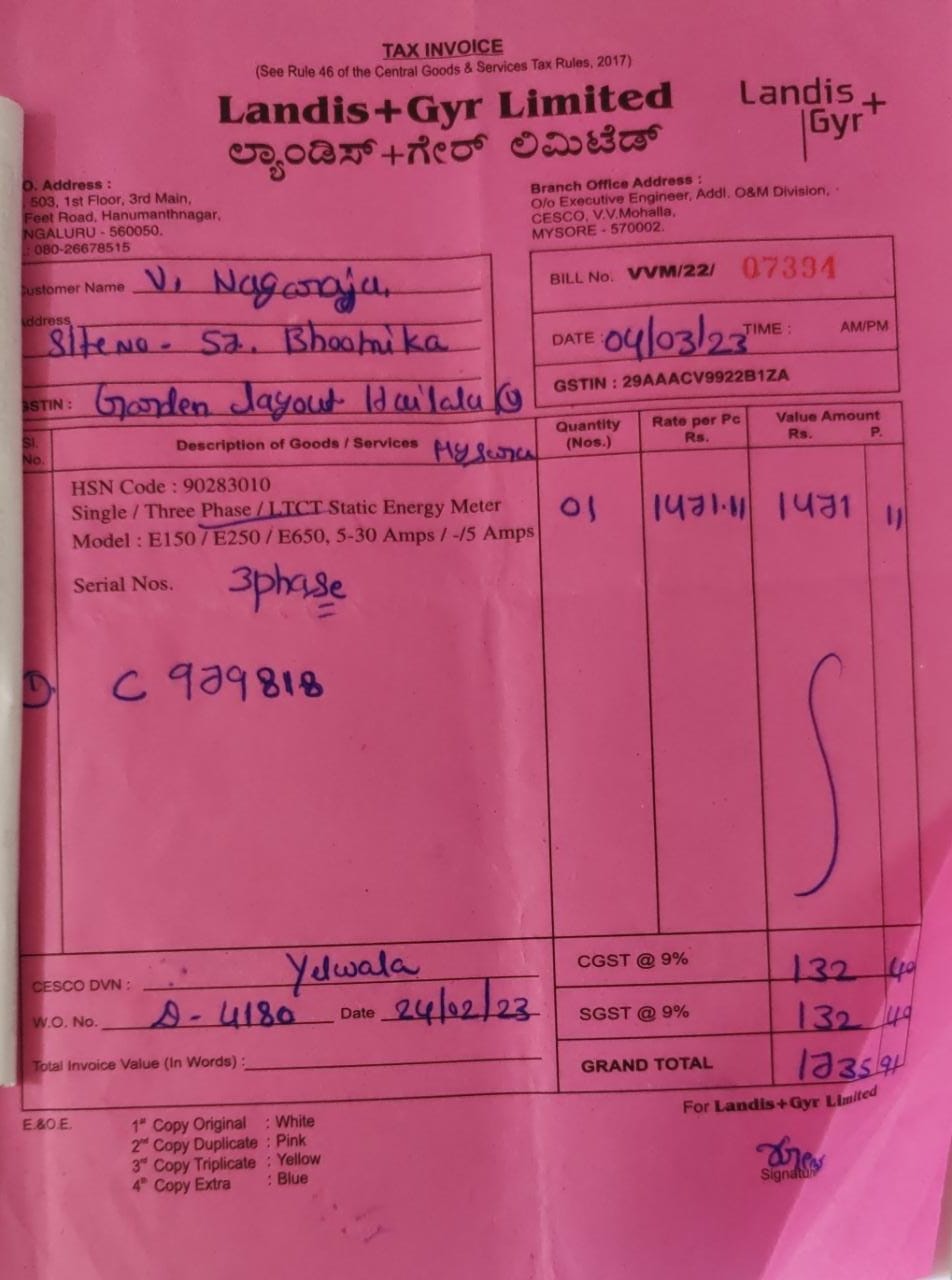 TAX INVOICE
(See Rule 46 of the Central Goods & Services Tax Rules, 2017)
Landis+Gyr Limited
ಲ್ಯಾಂಡಿಸ್+ಗೇರ್ ಲಿಮಿಟೆಡ್
Landis
Gyr+
O. Address :
503, 1st Floor, 3rd Main,
Feet Road, Hanumanthnagar,
NGALURU - 560050.
.: 080-26678515
Branch Office Address :
O/o Executive Engineer, Addl. O&M Division,
CESCO, V.V.Mohalla,
MYSORE - 570002.
ustomer Name V. Nagaraja,
ddress
Site No - 57. Bhoomika
GSTIN : Garden Layout Huilalu
Mysuru
BILL No. VVM/22/ 07334
DATE : 04/03/23 TIME : AM/PM
GSTIN : 29AAACV9922B1ZA
Sl. No. Description of Goods / Services Quantity (Nos.) Rate per Pc Rs. Value Amount Rs. P.
HSN Code : 90283010
Single / Three Phase / LTCT Static Energy Meter 01 1471.11 1471 11
Model : E150 / E250 / E650, 5-30 Amps / -/5 Amps
Serial Nos. 3phase
1). C 979818
CESCO DVN : Yelwala
W.O. No. D - 4180 Date 24/02/23
Total Invoice Value (In Words) :
CGST @ 9% 132 40
SGST @ 9% 132 40
GRAND TOTAL 1735 91
For Landis+Gyr Limited
Signature
E.&O.E.
1st Copy Original : White
2nd Copy Duplicate : Pink
3rd Copy Triplicate : Yellow
4th Copy Extra : Blue